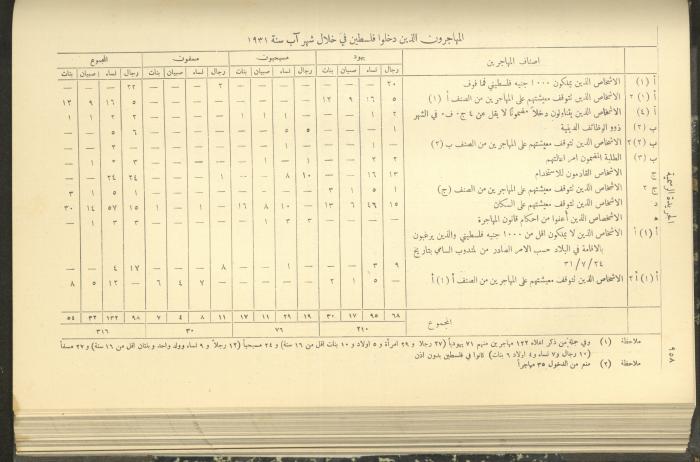 المهاجرون الذين دخلوا فلسطين في خلال شهر آب سنة ١٩٣١
اصناف المهاجرين يهود مسيحيون مسلمون المجموع
رجال نساء صبيان بنات رجال نساء صبيان بنات رجال نساء صبيان بنات رجال نساء صبيان بنات
أ (١) الاشخاص الذين يملكون ١٠٠٠ جنيه فلسطيني فما فوق ٢٠ — — — — — — — ٢ — — — ٢٢ — — —
أ (١) ٢ الاشخاص الذين تتوقف معيشتهم على المهاجرين من الصنف أ (١) ٥ ١٦ ٩ ١٣ — — — — — — — — ٥ ١٦ ٩ ١٣
أ (٤) الاشخاص الذين يتناولون دخلاً مضموناً لا يقل عن ٤ ج. ف. في الشهر ٢ ١ — — — ١ ١ ١ — — — — ٢ ٢ ١ ١
ب (٢) ذوو الوظائف الدينية ١ — — — ٥ ٥ — — — — — — ٦ ٥ — —
ب (٢) ٢ الاشخاص الذين تتوقف معيشتهم على المهاجرين من الصنف ب (٢)
ب (٣) الطلبة المضمون امر اعالتهم
ج الاشخاص القادمون للاستخدام ١٣ ١٦ — — ١٠ ٨ — — ١ — — — ٢٤ ٢٤ — —
ج ٢ الاشخاص الذين تتوقف معيشتهم على المهاجرين من الصنف (ج) ١ ٥ ١ ٣ — — — — — — — — ١ ٥ ١ ٣
د الاشخاص الذين تتوقف معيشتهم على السكان ١٥ ٤٦ ٦ ١٣ — ١٠ ٨ ١٦ — ١ — ١ ١٥ ٥٧ ١٤ ٣٠
ه الاشخاص الذين أعفوا من احكام قانون المهاجرة — — — — ١ ٣ ٣ — — — — — ١ ٣ ٣ —
أ (١) أ الاشخاص الذين لا يملكون اقل من ١٠٠٠ جنيه فلسطيني والذين يرغبون
بالاقامة في البلاد حسب الامر الصادر من المندوب السامي بتاريخ
٣١/٧/٢٤ ٩ ٣ — — — ١ — — ٨ — — — ١٧ ٤ — —
أ (١) أ ٢ الاشخاص الذين تتوقف معيشتهم على المهاجرين من الصنف أ (١) أ — ٥ ١ ٢ — — — — — ٧ ٤ ٦ — ١٢ ٥ ٨
المجموع ٦٨ ٩٥ ١٧ ٣٠ ١٩ ٢٩ ١١ ١٧ ١١ ٨ ٤ ٧ ٩٨ ١٣٢ ٣٢ ٥٤
٢١٠ ٧٦ ٣٠ ٣١٦
ملاحظة (١) وفي جملة من ذكر اعلاه ١٢٢ مهاجرين منهم ٧١ يهودياً (٢٧ رجلا و ٢٩ امرأة و ٥ اولاد و ١٠ بنات اقل من ١٦ سنة) و ٢٤ مسيحياً (١٢ رجلاً و ٩ نساء وولد واحد وبنتان اقل من ١٦ سنة) و ٢٧ مسلماً
(١٠ رجال و ٧ نساء و ٤ اولاد ٦ بنات) كانوا في فلسطين بدون اذن
ملاحظة (٢) منع من الدخول ٣٥ مهاجراً
الجريدة الرسمية
٩٥٨